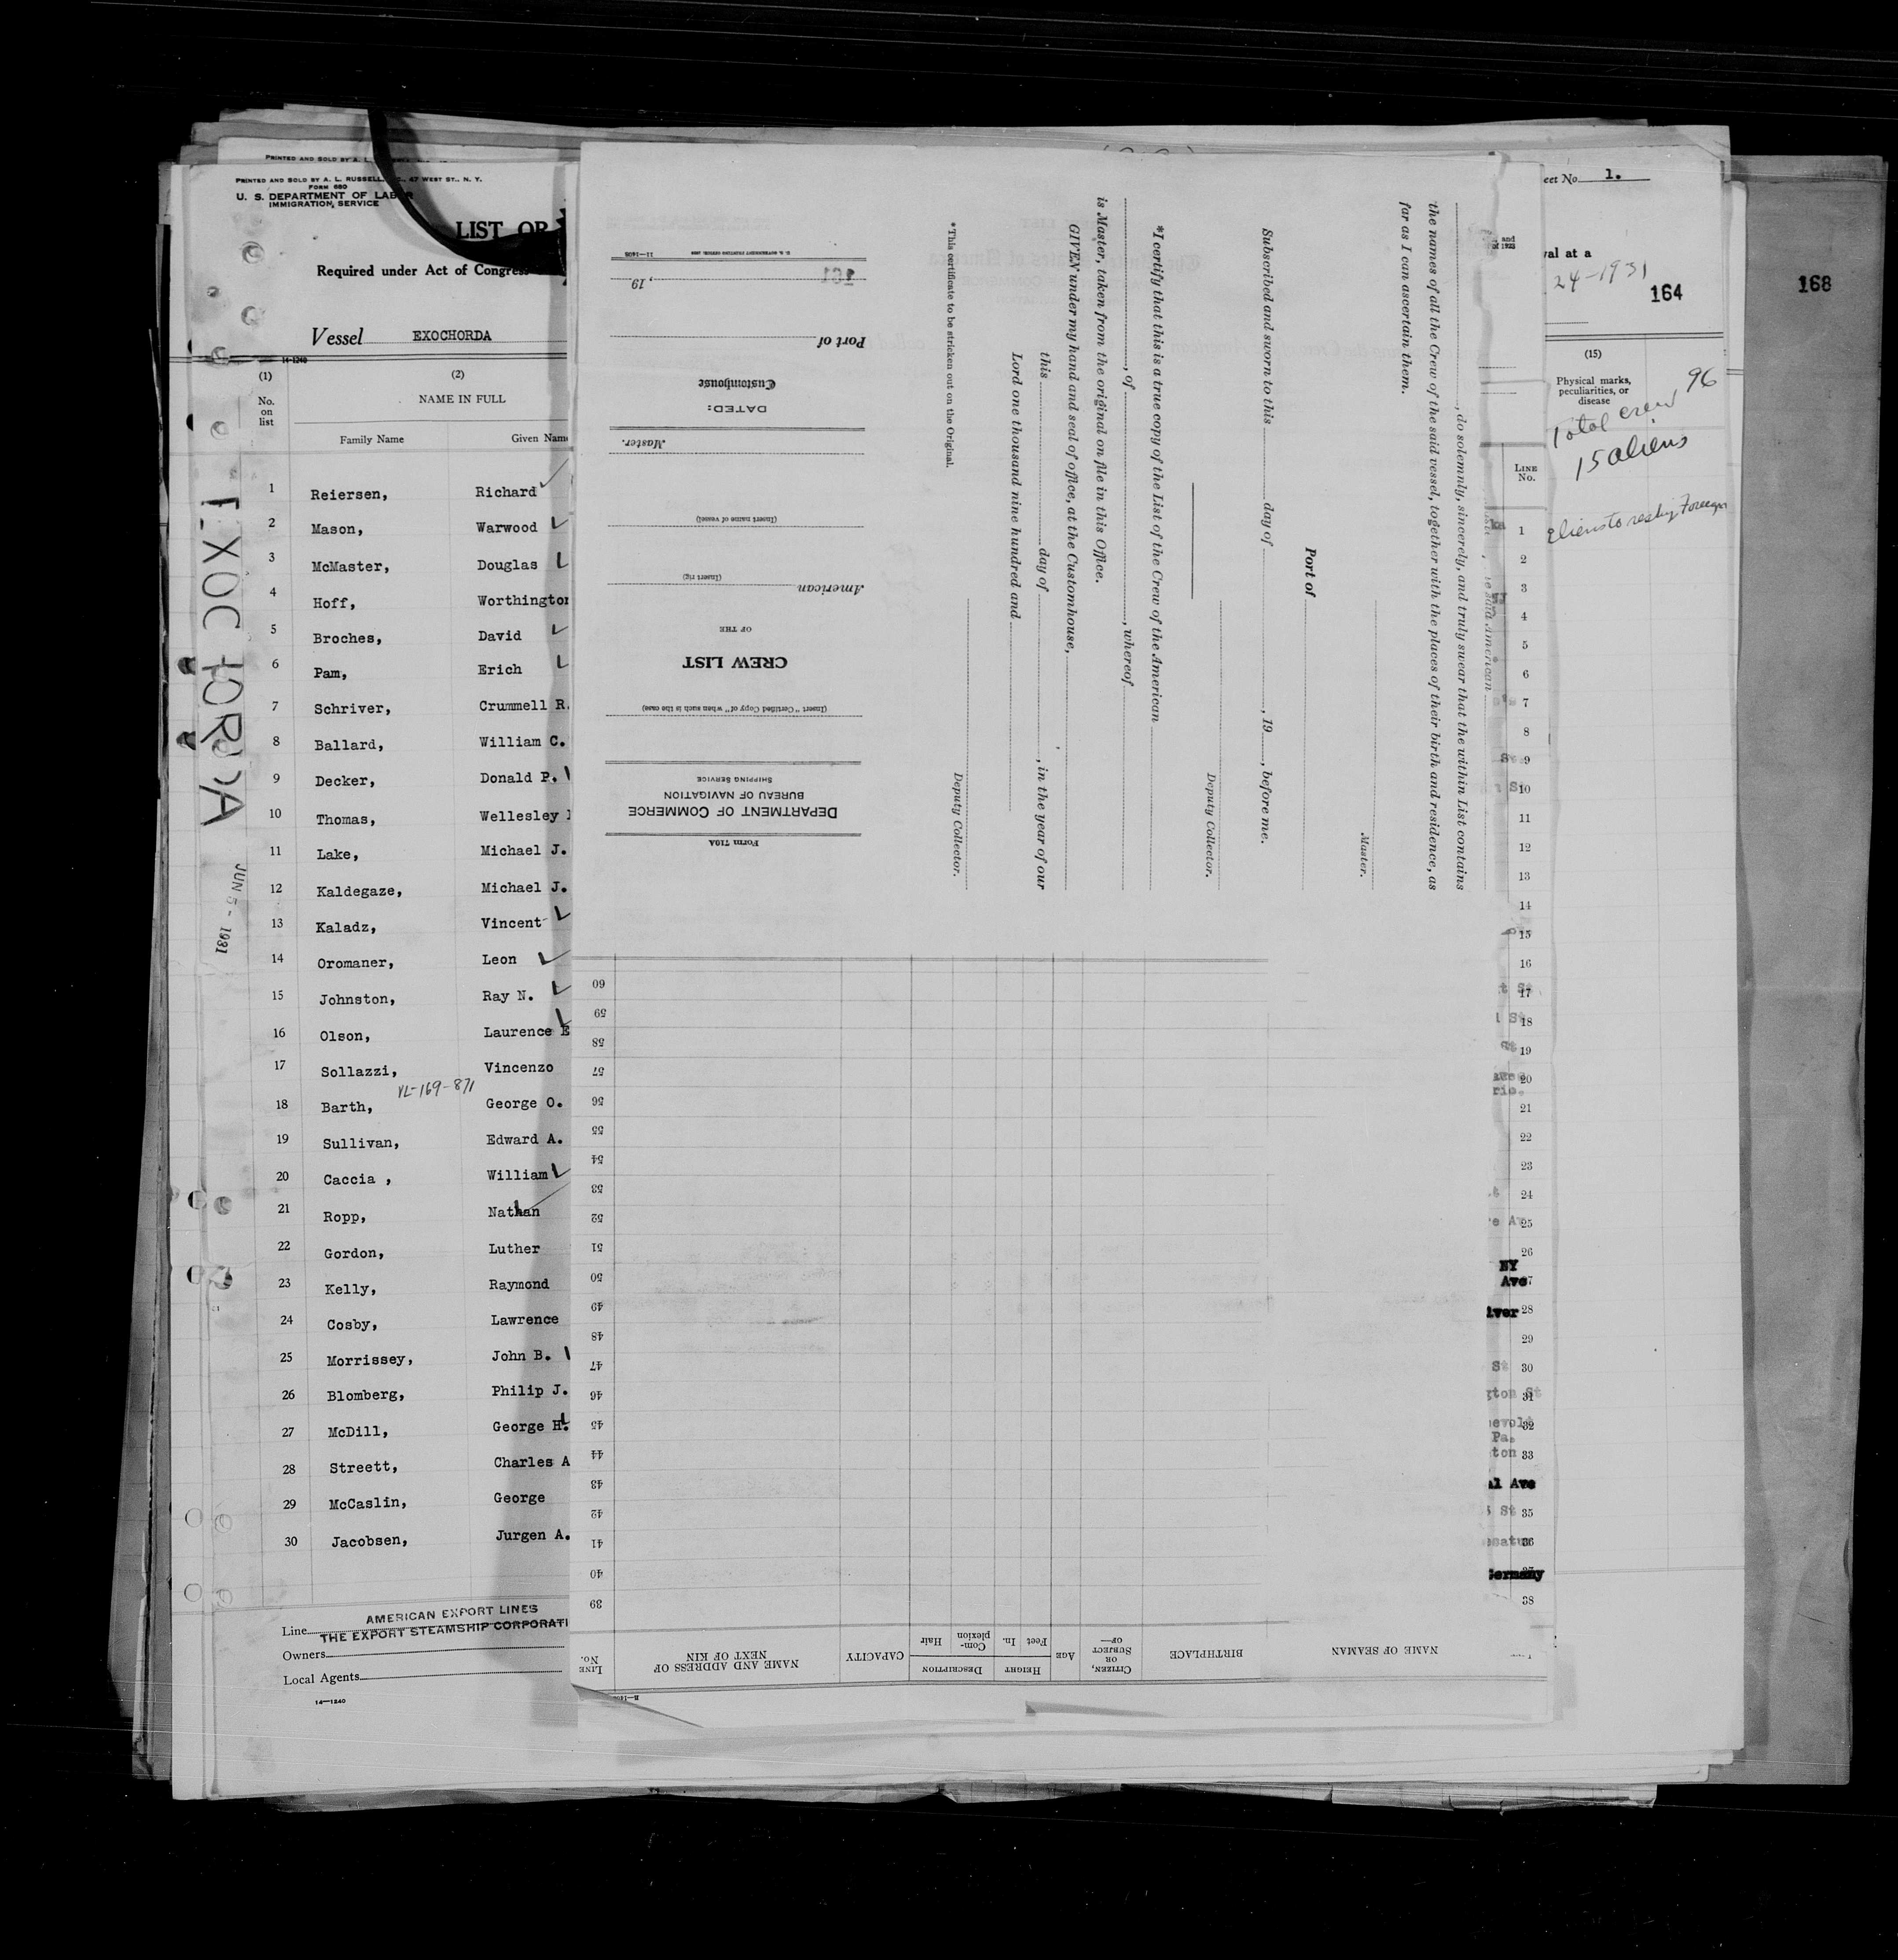 PRINTED AND SOLD BY A. L.
PRINTED AND SOLD BY A. L. RUSSELL, 47 WEST ST., N. Y.
FORM 680
U. S. DEPARTMENT OF LABOR
IMMIGRATION SERVICE
LIST OR
Required under Act of Congress
Vessel EXOCHORDA
14-1240
(1) (2)
No. on list
NAME IN FULL
Family Name Given Name
1 Reiersen, Richard
2 Mason, Warwood
3 McMaster, Douglas
4 Hoff, Worthington
5 Broches, David
6 Pam, Erich
7 Schriver, Crummell R.
8 Ballard, William C.
9 Decker, Donald P.
10 Thomas, Wellesley
11 Lake, Michael J.
12 Kaldegaze, Michael J.
13 Kaladz, Vincent
14 Oromaner, Leon
15 Johnston, Ray N.
16 Olson, Laurence E
17 Sollazzi, Vincenzo
VL-169-871
18 Barth, George O.
19 Sullivan, Edward A.
20 Caccia , William
21 Ropp, Nathan
22 Gordon, Luther
23 Kelly, Raymond
24 Cosby, Lawrence
25 Morrissey, John B.
26 Blomberg, Philip J.
27 McDill, George H.
28 Streett, Charles A
29 McCaslin, George
30 Jacobsen, Jurgen A.
Line AMERICAN EXPORT LINES
THE EXPORT STEAMSHIP CORPORATI
Owners
Local Agents
14—1240
EXOCHORDA
JUN 5 - 1931
Form 710A
DEPARTMENT OF COMMERCE
BUREAU OF NAVIGATION
SHIPPING SERVICE
(Insert "Certified Copy of" when such is the case)
CREW LIST
OF THE
American
(Insert rig)
(Insert name of vessel)
Master.
DATED:
Customhouse
Port of
, 19
U. S. GOVERNMENT PRINTING OFFICE: 11—1403
, do solemnly, sincerely, and truly swear that the within List contains
the names of all the Crew of the said vessel, together with the places of their birth and residence, as
far as I can ascertain them.
Master.
Port of
Subscribed and sworn to this day of , 19 , before me.
Deputy Collector.
*I certify that this is a true copy of the List of the Crew of the American
, of , whereof
is Master, taken from the original on file in this Office.
GIVEN under my hand and seal of office, at the Customhouse,
this day of , in the year of our
Lord one thousand nine hundred and
Deputy Collector.
*This certificate to be stricken out on the Original.
LINE No.
NAME OF SEAMAN
BIRTHPLACE
CITIZEN, OR SUBJECT OF—
AGE
HEIGHT
Feet In.
DESCRIPTION
Com-plexion
Hair
CAPACITY
NAME AND ADDRESS OF NEXT OF KIN
LINE No.
39
40
41
42
43
44
45
46
47
48
49
50
51
52
53
54
55
56
57
58
59
60
LINE No.
1
2
3
4
5
6
7
8
9
10
11
12
13
14
15
16
17
18
19
20
21
22
23
24
25
26
NY
Ave
28
29
30
31
32
Pa.
33
Ave
35
36
Germany
38
eet No. 1.
val at a
24-1931
164
168
(15)
Physical marks, peculiarities, or disease
Total crew 96
15 aliens